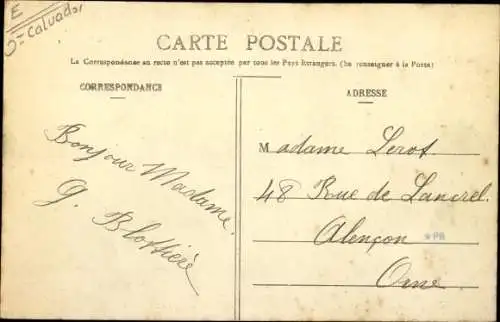 E
Calvados
CARTE POSTALE
La Correspondance au recto n'est pas acceptée par tous les Pays Etrangers. (Se renseigner à la Poste)
CORRESPONDANCE
ADRESSE
Bonjour Madame.
G. Blottière
Madame Lerot.
48 Rue de Lancrel.
Alençon
*PB
Orne